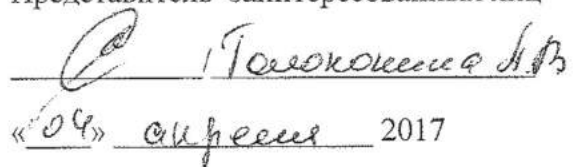 Представитель заинтересованных лиц
/ Толоконина А.В
«04» апреля 2017